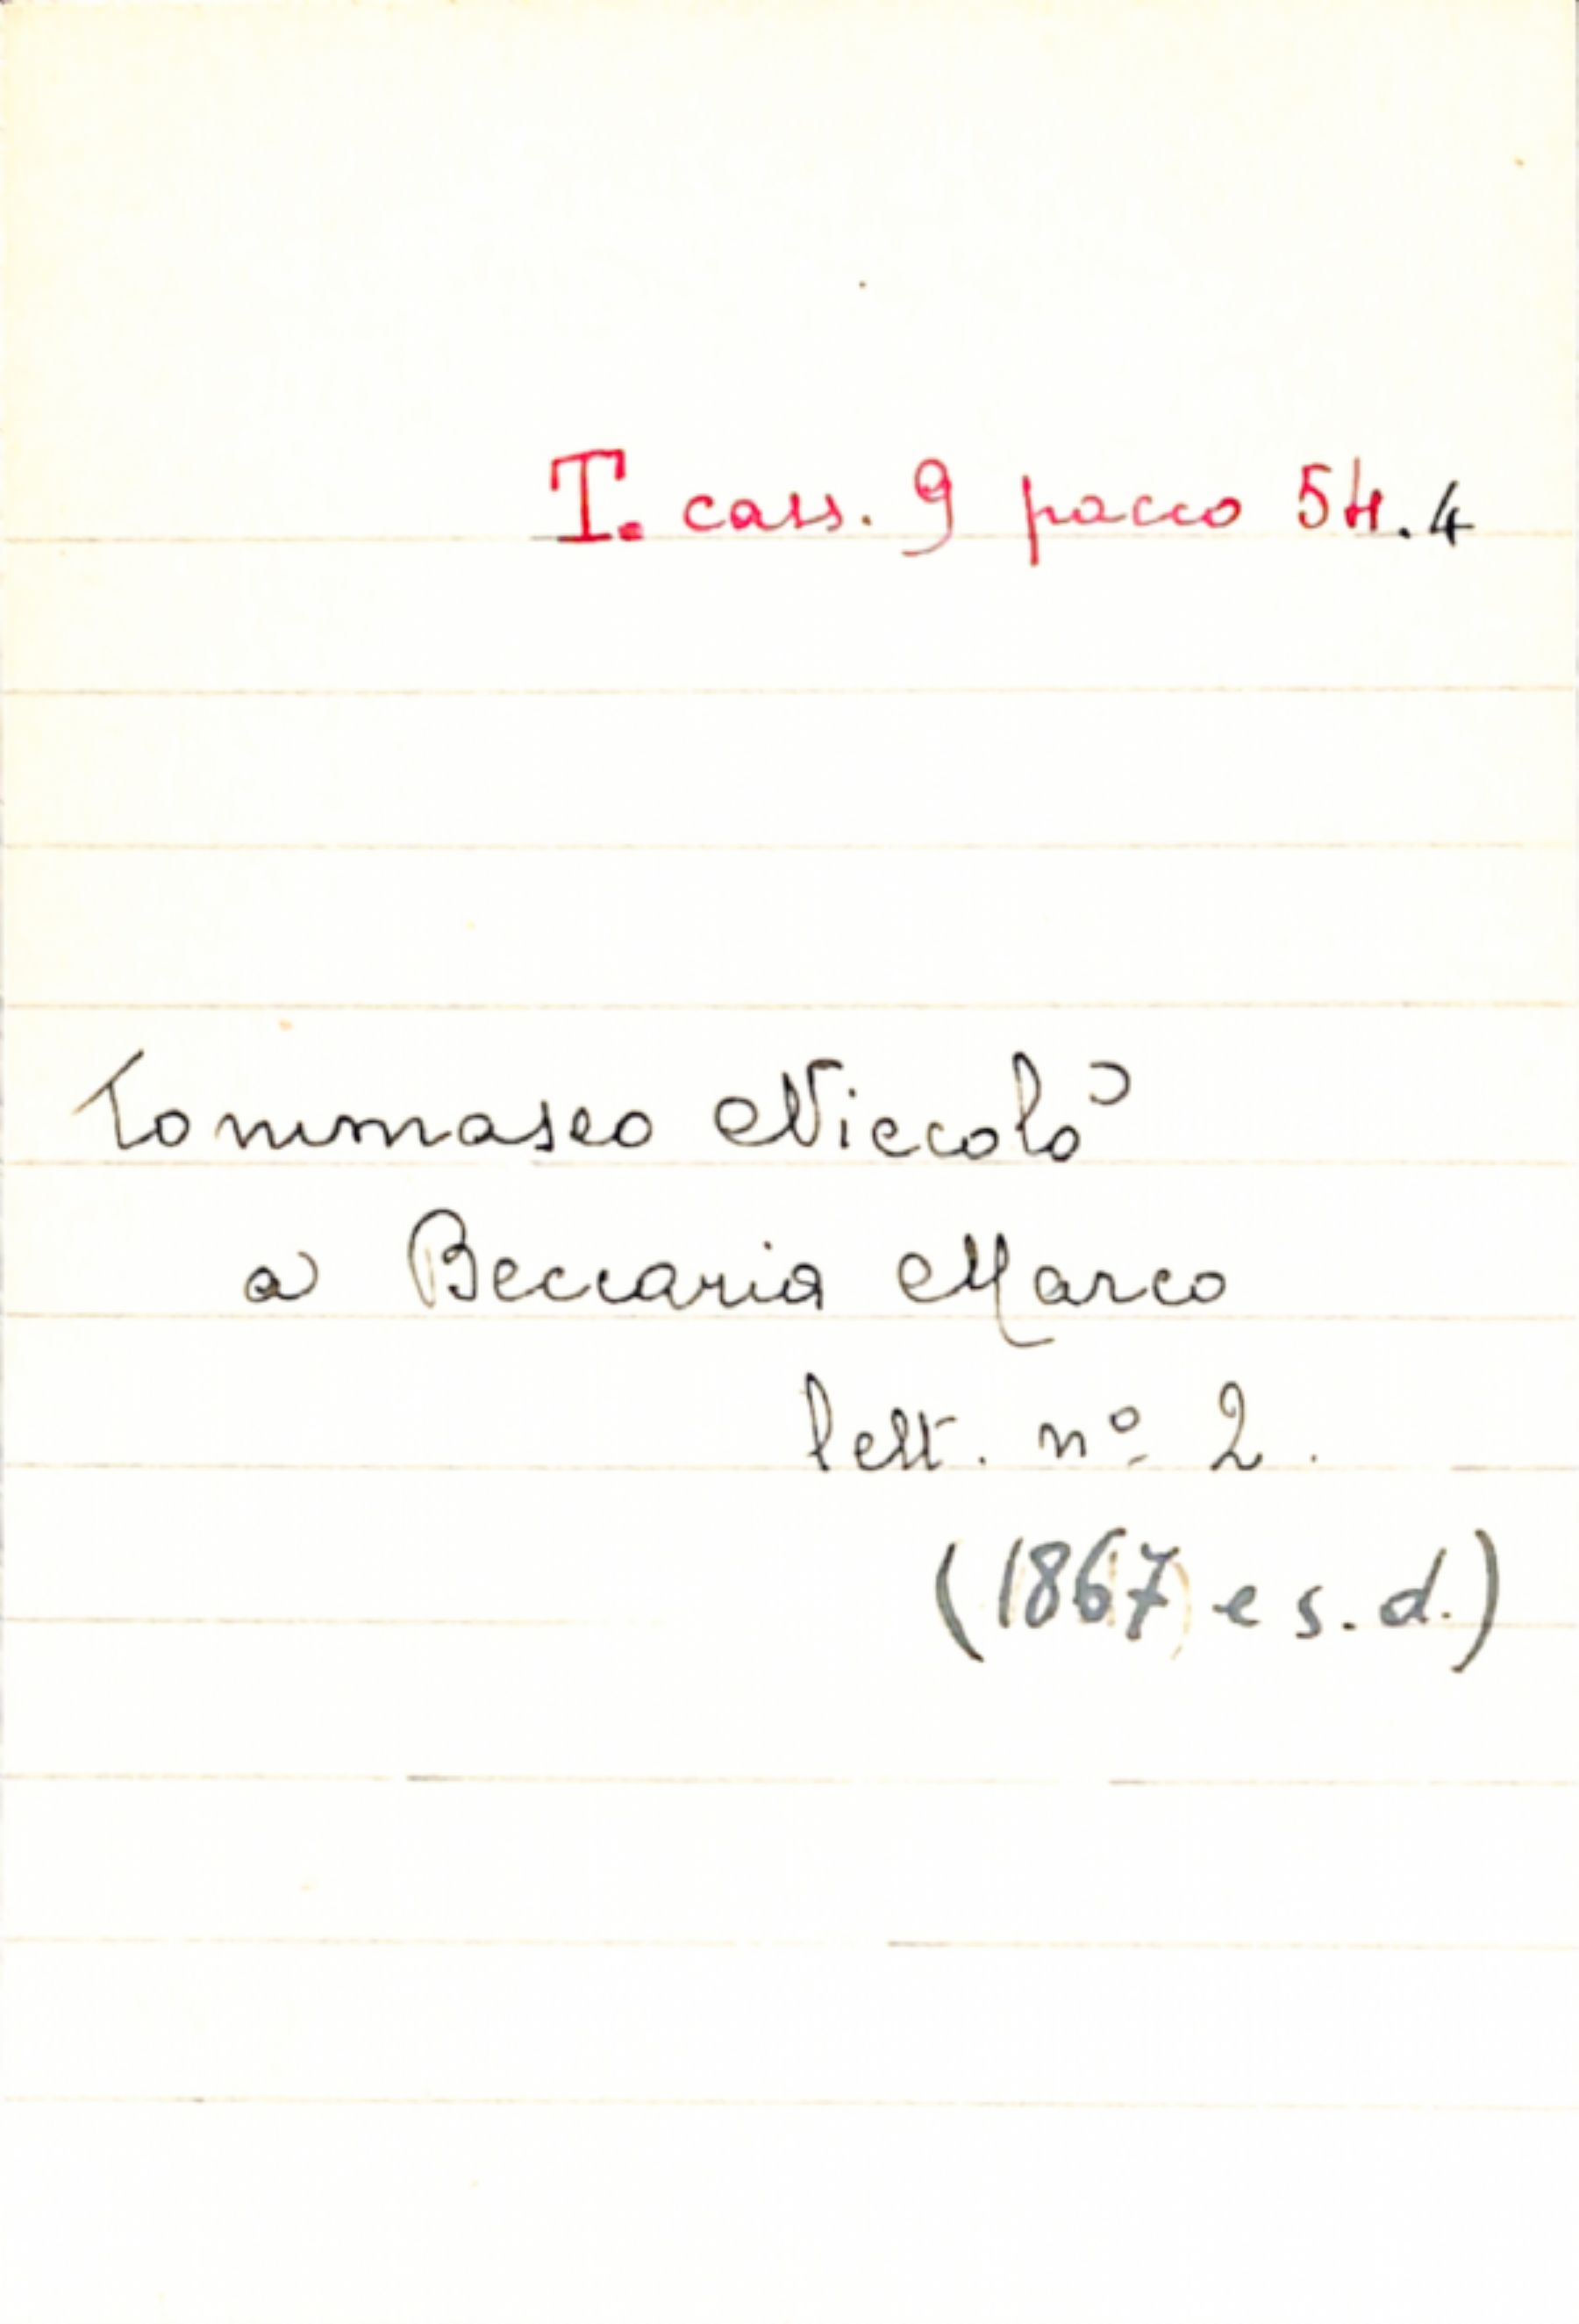 T. cass. 9 pacco 54.4
Tommaseo Niccolò
a Beccaria Marco
lett. nº 2.
(1867 e s.d.)